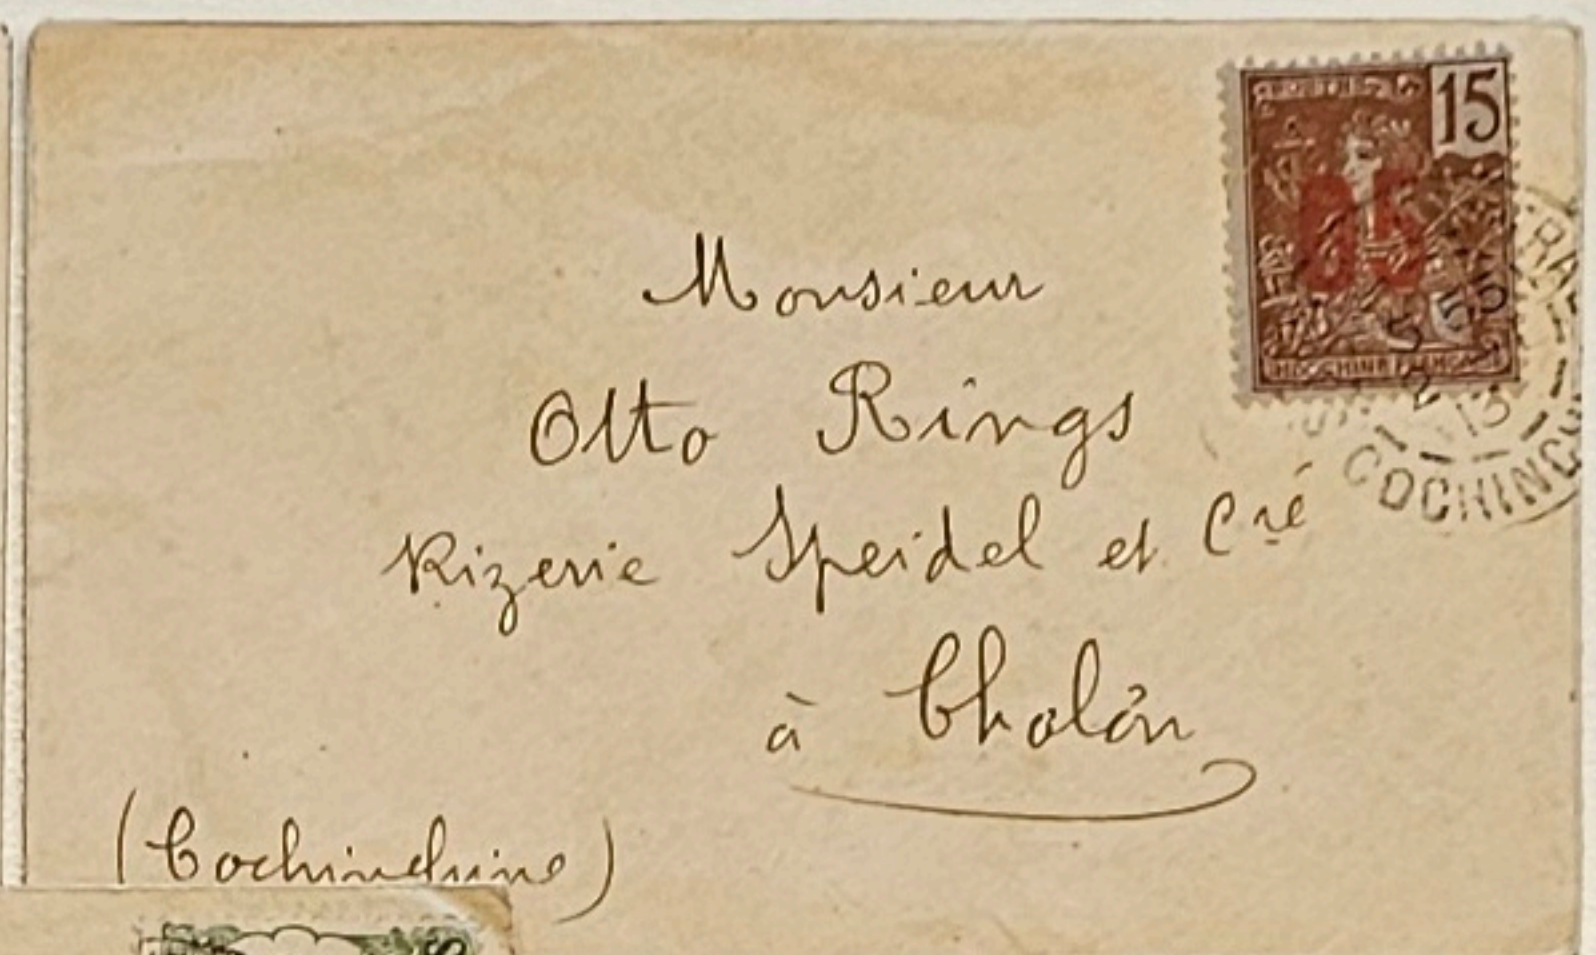 15
05
INDOCHINE FRANÇAISE
5 55
13
COCHINCH
Monsieur
Otto Rings
Rizerie Speidel et Cié
à Cholon
(Cochinchine)